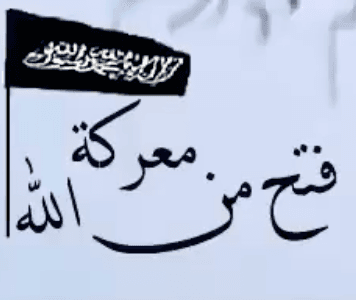 لا إله إلا الله محمد رسول الله
معركة
فتح من الله